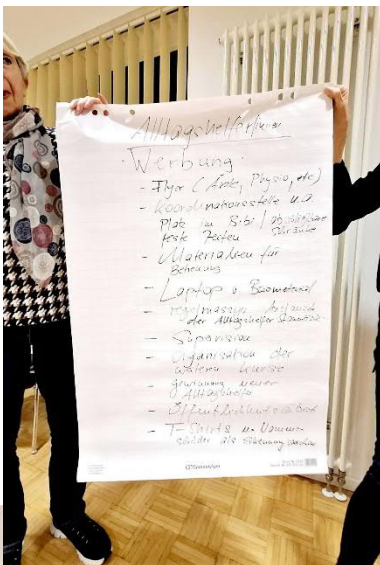 Alltagshelferinnen
Werbung
- Flyer (Ärzte, Physio, etc)
- Koordinationsstelle u.a.
Platz im Bibi / abschließbare
feste Zeiten Schränke
- Materialien für
Betreuung
- Laptop u. Büromaterial
- regelmässig Austausch
der Alltagshelfer
- Supervision
- Organisation der
weiteren Kurse
- gewinnung neuer
Alltagshelfer
- Öffentlichkeitsarbeit
- T-Shirts u. Namen
schilder als